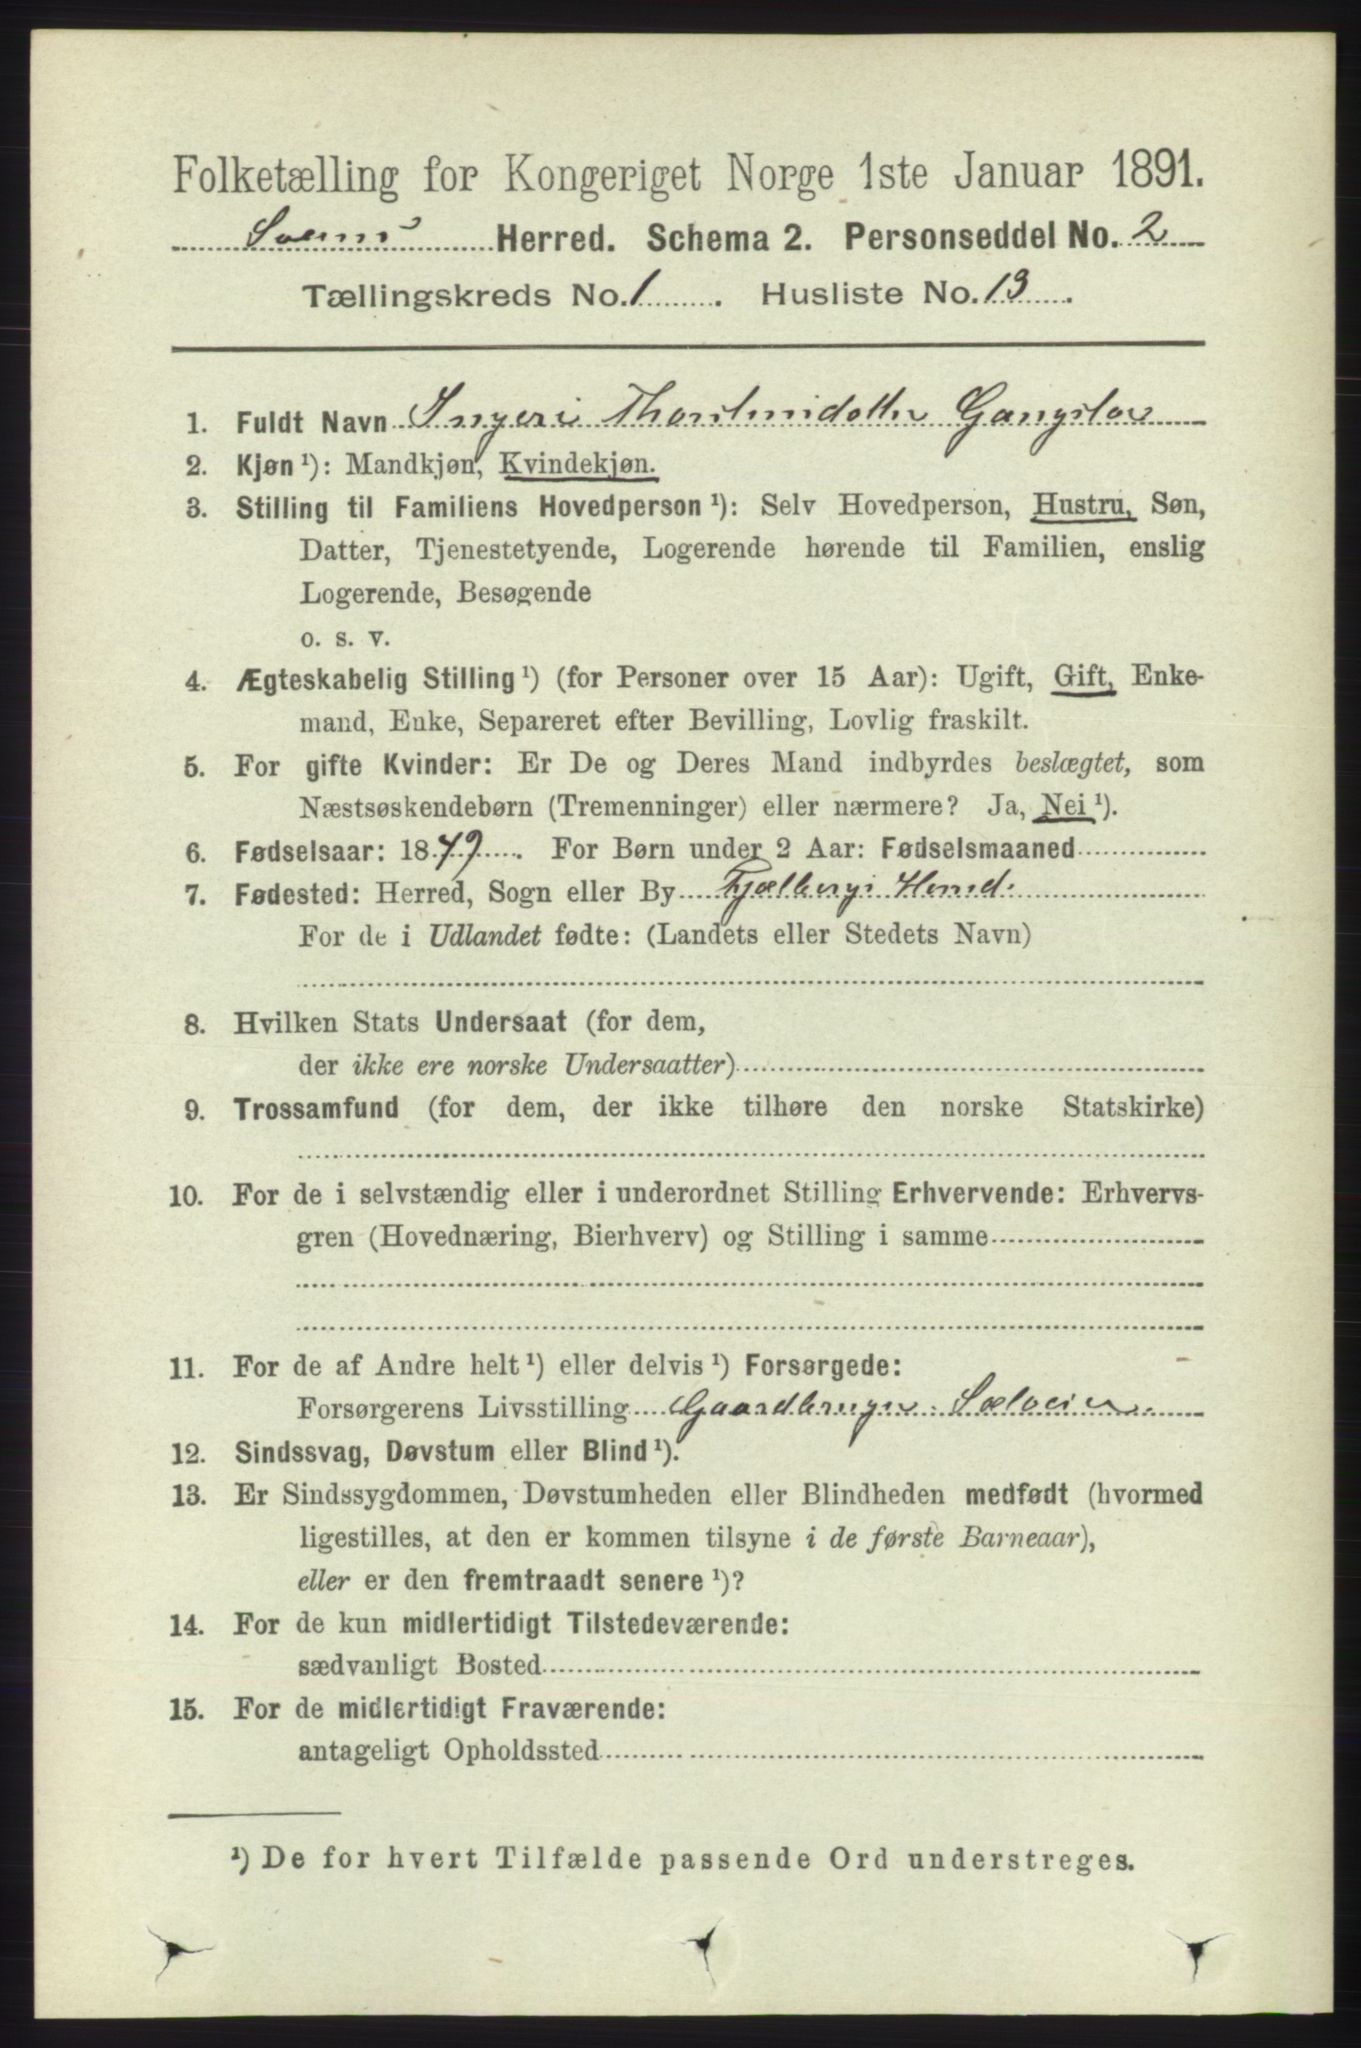 Folketælling for Kongeriget Norge 1ste Januar 1891.
Herred. Schema 2. Personseddel No. 2
Tællingskreds No. 1. Husliste No. 13.
1. Fuldt Navn Ingeri
2. Kjøn ¹): Mandkjøn, Kvindekjøn.
3. Stilling til Familiens Hovedperson ¹): Selv Hovedperson, Hustru, Søn,
Datter, Tjenestetyende, Logerende hørende til Familien, enslig
Logerende, Besøgende
o. s. v.
4. Ægteskabelig Stilling ¹) (for Personer over 15 Aar): Ugift, Gift, Enke-
mand, Enke, Separeret efter Bevilling, Lovlig fraskilt.
5. For gifte Kvinder: Er De og Deres Mand indbyrdes beslægtet, som
Næstsøskendebørn (Tremenninger) eller nærmere? Ja, Nei ¹).
6. Fødselsaar: 1849. For Børn under 2 Aar: Fødselsmaaned
7. Fødested: Herred, Sogn eller By Fjælbergs Herred.
For de i Udlandet fødte: (Landets eller Stedets Navn)
8. Hvilken Stats Undersaat (for dem,
der ikke ere norske Undersaatter)
9. Trossamfund (for dem, der ikke tilhøre den norske Statskirke)
10. For de i selvstændig eller i underordnet Stilling Erhvervende: Erhvervs-
gren (Hovednæring, Bierhverv) og Stilling i samme
11. For de af Andre helt ¹) eller delvis ¹) Forsørgede:
Forsørgerens Livsstilling Gaardbruger. Selveier.
12. Sindssvag, Døvstum eller Blind ¹).
13. Er Sindssygdommen, Døvstumheden eller Blindheden medfødt (hvormed
ligestilles, at den er kommen tilsyne i de første Barneaar),
eller er den fremtraadt senere ¹)?
14. For de kun midlertidigt Tilstedeværende:
sædvanligt Bosted
15. For de midlertidigt Fraværende:
antageligt Opholdssted
¹) De for hvert Tilfælde passende Ord understreges.